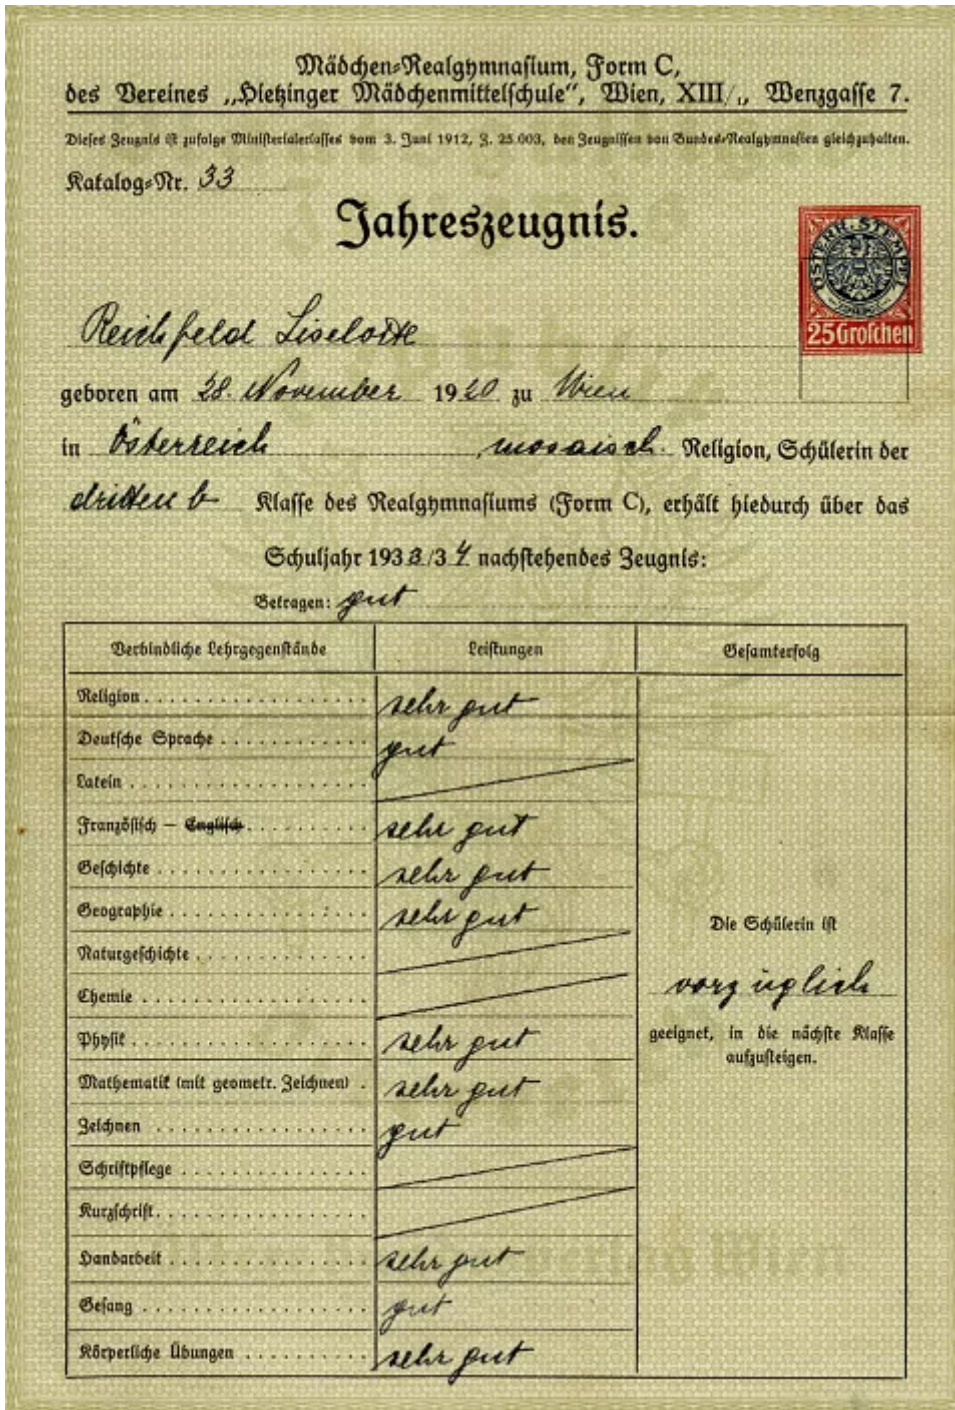 Mädchen-Realgymnasium, Form C,
des Vereines „Hietzinger Mädchenmittelschule“, Wien, XIII/1, Wenzgasse 7.
Dieses Zeugnis ist zufolge Ministerialerlasses vom 3. Juni 1912, Z. 25.003, den Zeugnissen von Bundes-Realgymnasien gleichzuhalten.
Katalog-Nr. 33
Jahreszeugnis.
ÖSTERR. STEMPEL
25 Groschen
Reichfeld Liselotte
geboren am 28. November 1920 zu Wien
in Österreich, mosaisch. Religion, Schülerin der
dritten b Klasse des Realgymnasiums (Form C), erhält hiedurch über das
Schuljahr 1933/34 nachstehendes Zeugnis:
Betragen: gut
Verbindliche Lehrgegenstände Leistungen Gesamterfolg
Religion sehr gut
Deutsche Sprache gut
Latein
Französisch – Englisch sehr gut
Geschichte sehr gut
Geographie sehr gut
Naturgeschichte
Chemie
Physik sehr gut
Mathematik (mit geometr. Zeichnen) sehr gut
Zeichnen gut
Schriftpflege
Kurzschrift
Handarbeit sehr gut
Gesang gut
Körperliche Übungen sehr gut
Die Schülerin ist
vorzüglich
geeignet, in die nächste Klasse
aufzusteigen.